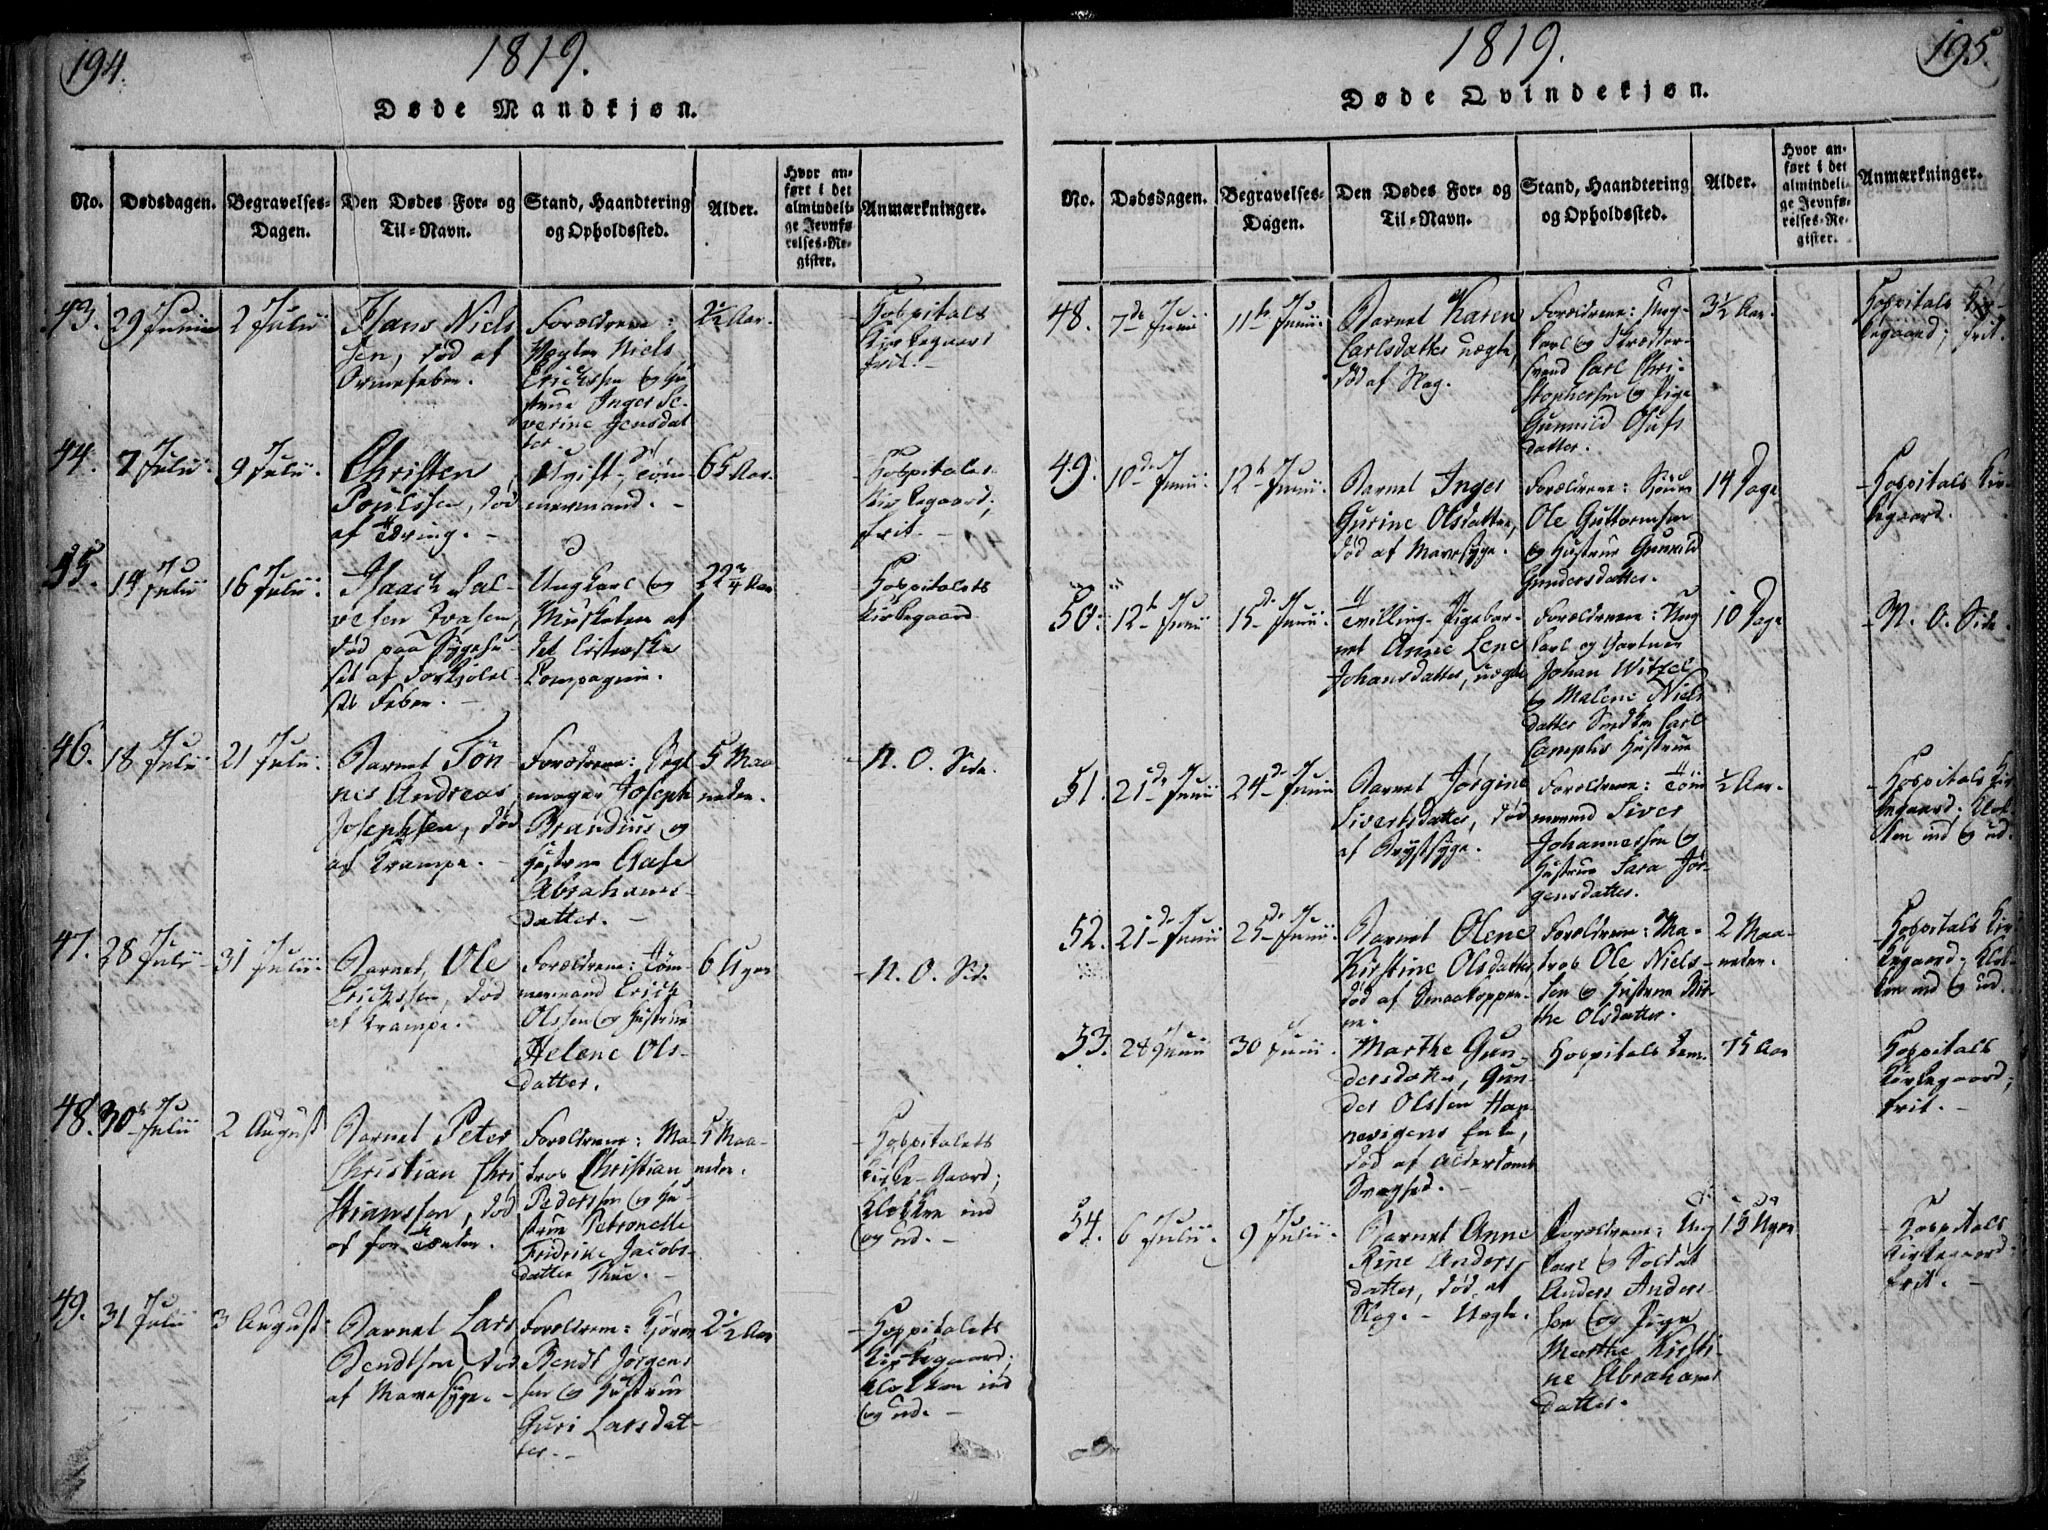 194.
1819.
Døde Mandkjøn.
No.
Dødsdagen.
Begravelses-
Dagen.
Den Dødes For- og
Til-Navn.
Stand, Haandtering
og Opholdssted.
Alder.
Hvor an-
ført i det
almindeli-
ge Jevnfø-
relses-Re-
gister.
Anmærkninger.
43.
29 Junii
2 Julii
Hans Niels
sen, død af
Ormefeber.
Forældrene:
Vægter Niels
Erichsen og Hu
strue Inger Se-
verine Jensdat
ter.
2½ Aar.
Hospitals
Kirkegaard
frit.
44.
7 Julii
9 Julii.
Christen
Poulssen, død
af Tæring.
Ugift Tøm-
mermand.
65 Aar.
Hospitals
Kirkegaard;
frit.
45.
14 Julii
16 Julii.
Isaach Sal-
vesen Ivasen,
død paa Sygehu-
set af Forkjølel-
ses Feber.
Ungkarl og
Musketeer af
det Listerske
Compagnie.
22¾ Aar
Hospitalets
Kirkegaard
46.
18 Julii
21 Julii.
Barnet Tøn-
nes Andreas
Josephsen, død
af Krampe.
Forældrene: Seyl
mager Joseph
Brandius og
Hustrue Aase
Abrahams-
datter.
5 Maa
neder.
N. O. Side.
47.
28 Julii
31 Julii.
Barnet, Ole
Erichssen, død
af Krampe.
Forældrene: Tøm-
mermand Erich
Olssen og Hustrue
Helene Ols-
datter.
6 Uger
N. O. Side
48.
30 Julii
2 August
Barnet Peter
Christian Chri
stianssen, død
af for Tænder.
Forældrene: Ma-
tros Christian
Pederssen og Hu-
strue Petronelle
Fridrike Jacobs-
datter Thue.
5 Maa-
neder.
Hospitalets
Kirke-Gaard;
Klokken ind
og ud.
49.
31 Julii
3 August
Barnet Lars
Bendtsen, død
af Mavesyge.
Forældrene:
Bendt Jørgens
sen og Hustrue
Guri Larsdat-
ter.
2½ Aar
Hospitalets
Kirkegaard;
Klokken ind
og ud.
1819.
195.
Døde Qvindekjøn.
No.
Dødsdagen.
Begravelses-
Dagen.
Den Dødes For- og
Til-Navn.
Stand, Haandtering
og Opholdssted.
Alder.
Hvor an-
ført i det
almindeli-
ge Jevnfø-
relses-Re-
gister.
Anmærkninger.
48.
7de Junii
11te Junii.
Barnet Karen
Carlsdatter uægte,
død af Slag.
Forældrene: Ung-
karl og
svend Carl Chri-
stophersen og Pige
Gunnild Olufs
datter.
3½ Aar.
Hospitals Kir-
kegaard; frit.
49.
10de Junii
12te Junii.
Barnet Inger
Gurine Olsdatter,
død af Mavesyge.
Forældrene:
Ole Guttormsen
og Hustrue Gunnild
Gundersdatter.
14 Dage
Hospitals Kir-
kegaard.
50.
12te Junii
15de Junii
Tvilling-Pigebar-
net Anne Lene
Johansdatter, uægte
Forældrene: Ung
karl og Gartner
Johan Witzel
og Malene Niels
datter
Hustrue
10 Dage
N. O. Side
51.
21de Junii
24de Junii
Barnet Jørgine
Sivertsdatter, død
af Brystsyge.
Forældrene: Tøm
mermand Siver
Johannessen og
Hustrue Sara Jør-
gensdatter.
½ Aar.
Hospitals Kir
kegaard; Klok-
ken ind og ud.
52.
21de Junii
25de Junii.
Barnet Olene
Kirstine Olsdatter
død af Smaakopper-
ne.
Forældrene: Ma-
tros Ole Niels-
sen og Hustrue Bir-
the Olsdatter.
2 Maa-
neder.
Hospitals Kir-
kegaard; Klok-
ken ind og ud.
53.
28 Junii
30 Junii.
Marthe Gun-
dersdatter, Gun-
der Olssen Han-
nevigens Enke,
død af Alderdoms
Svaghed.
Hospitals Lem.
75 Aar
Hospitals
Kirkegaard;
frit.
54.
6 Julii.
9 Julii.
Barnet Anne
Kine Anders-
datter, død af
Slag. - Uægte.
Forældrene: Ung
karl og Soldat
Anders Anders-
sen og Pige
Marthe Kirsti-
ne Abrahams
datter.
15 Uger
Hospitals
Kirkegaard
frit.